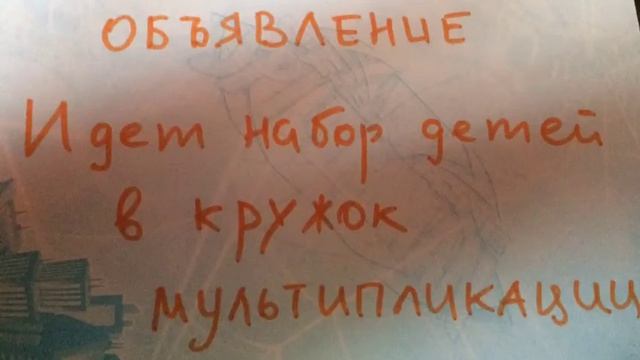 ОБЪЯВЛЕНИЕ
Идет набор детей
в кружок
МУЛЬТИПЛИКАЦИИ